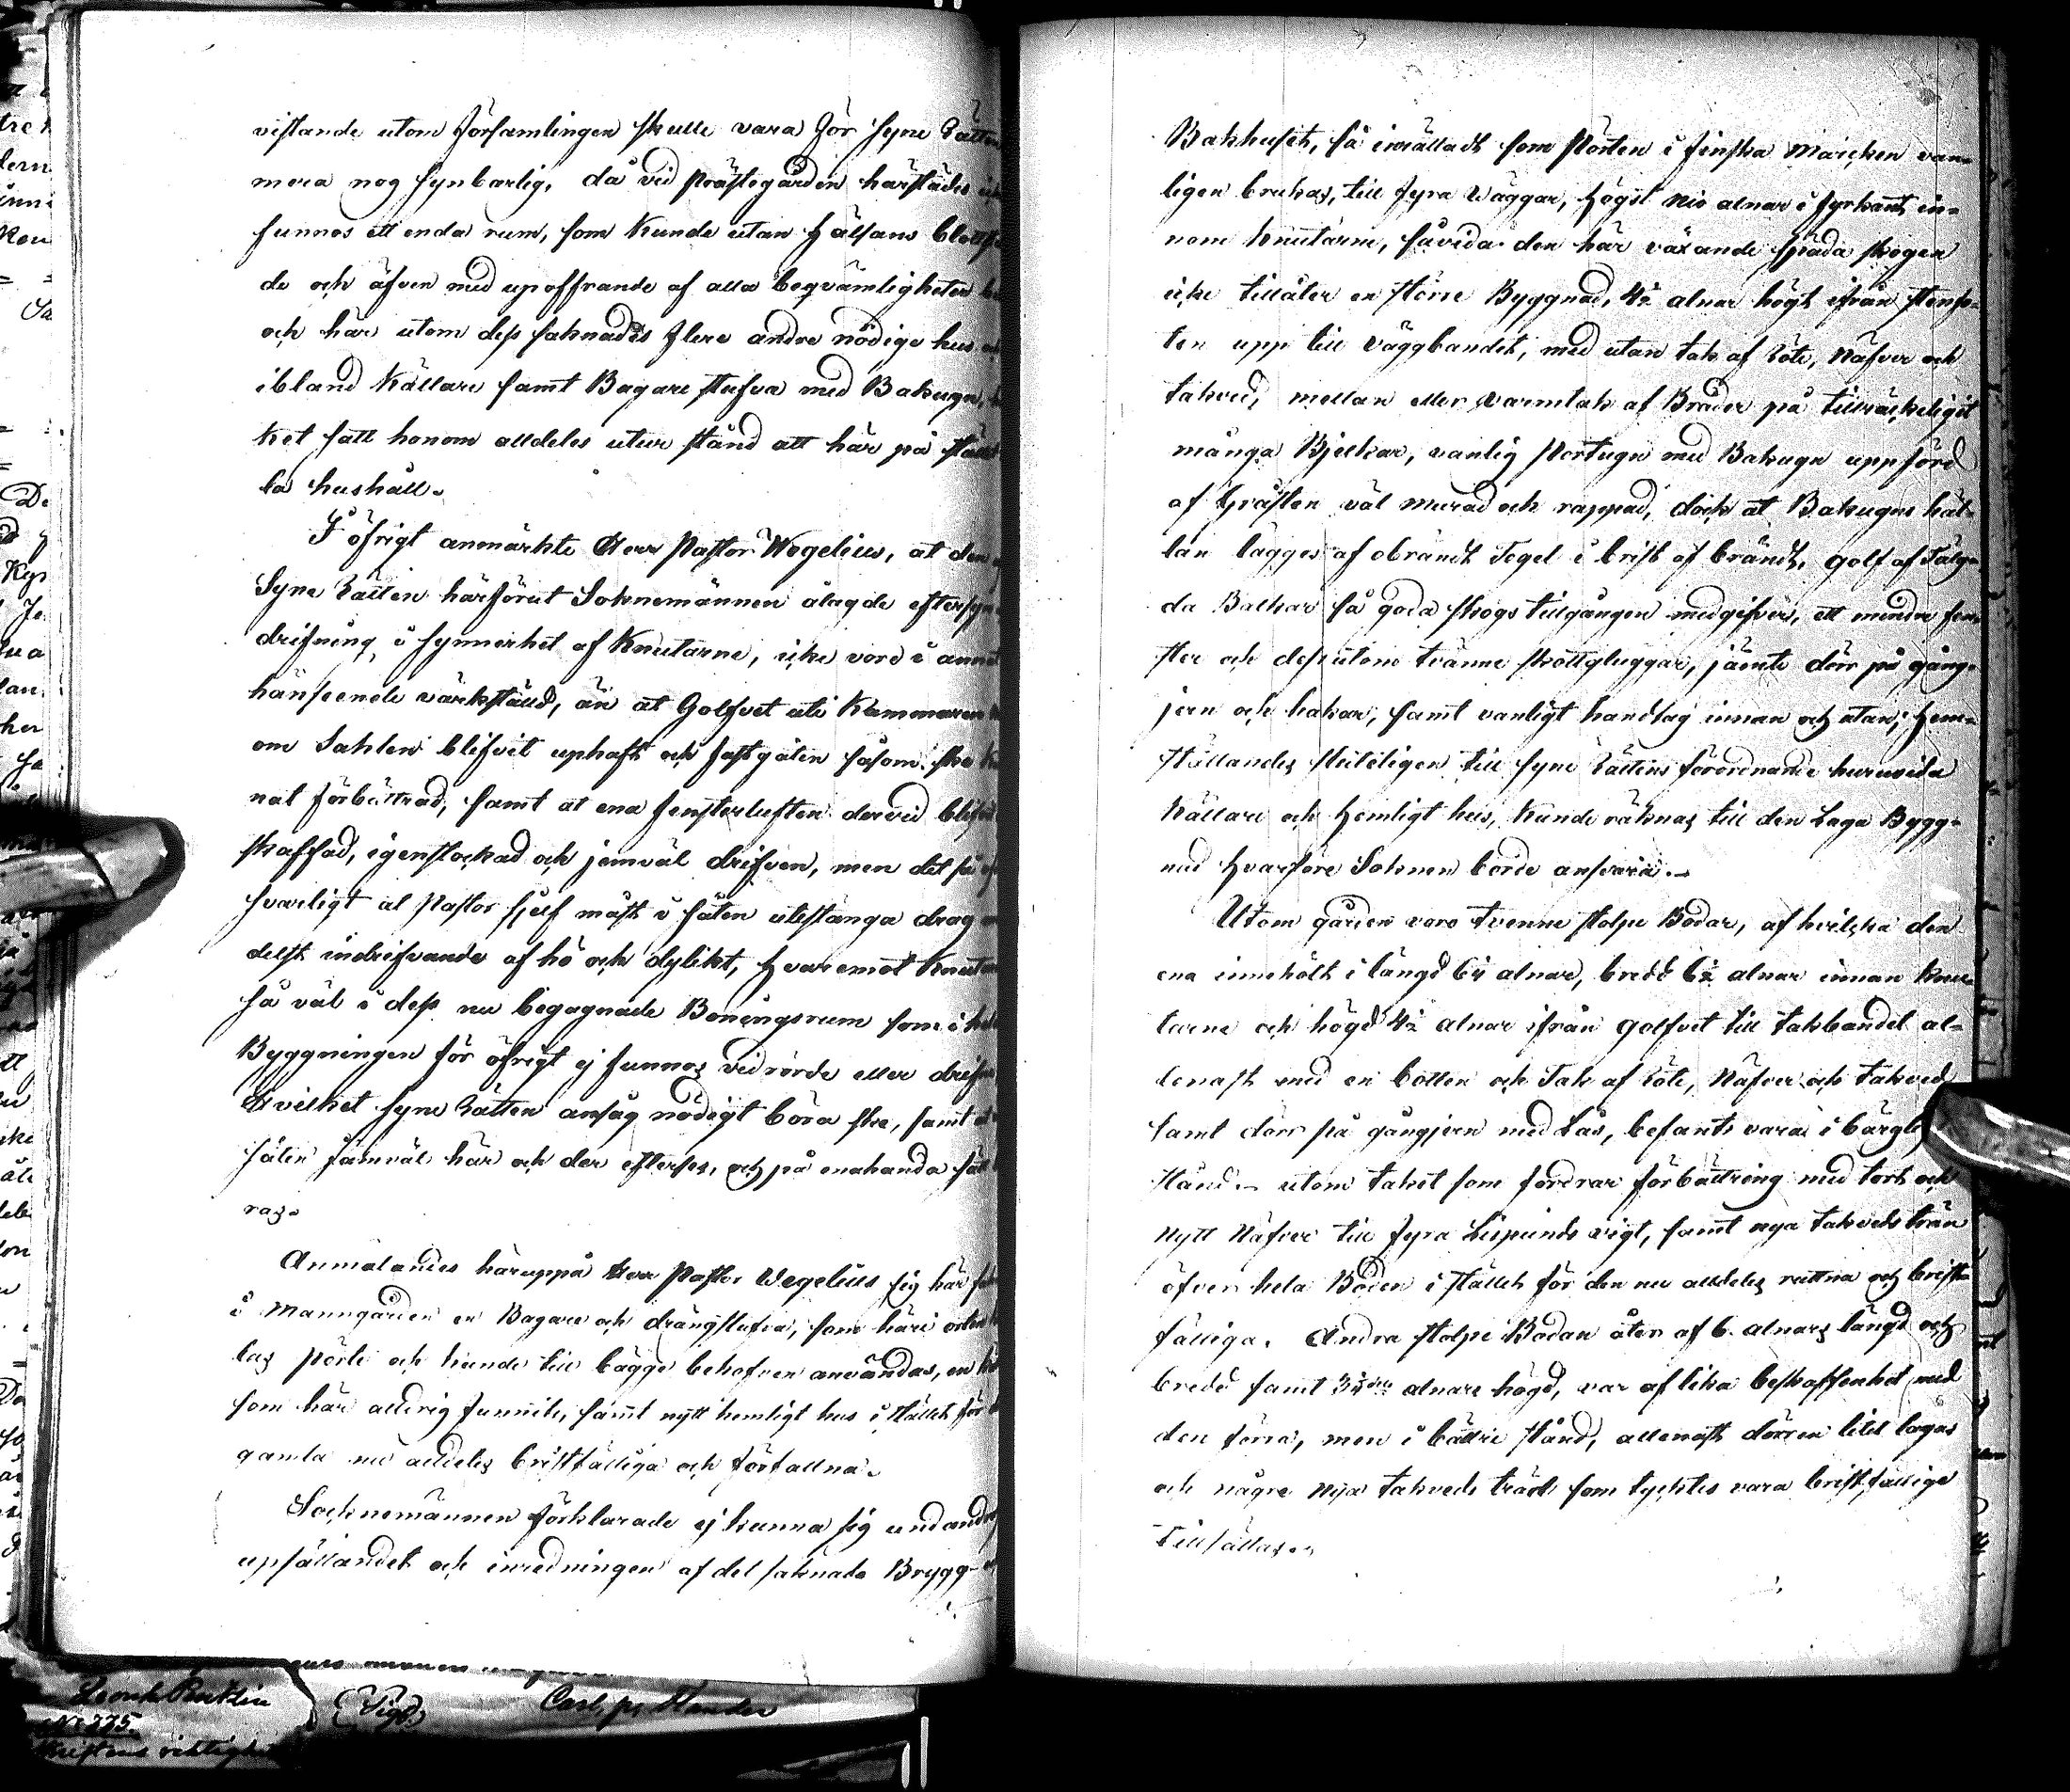 vistande utom församlingen skulle vara för Syne Rätten
mera nog synbarlig, då vid prästegården härstädes
funnos ett enda rum, som kunde utan hälsans
de och äfven med upoffrande af alla beqvämligheter
och här utom dess saknades flere andre nödige hus
ibland Källare samt Bagare stufva med Bakugn,
ket satt honom alldeles utur stånd att här på
la hushåll.
I öfrigt anmärkte Herr Pastor Wegelius, at den
Syne Rätten härförut Soknemännen ålagde
drifning i synnerhet af Knutarne, icke vore i
hänseende värkställd, än at Golfvet uti Kammaren
om Sahlen blifvit uphaft och fastgåten såsom
nat förbättrad, samt at ena fensterluften dervid
skaffad, igenstockad och jemväl drifven, men det så
svarligt at Pastor sjelf måst i såten utestänga drag
delst indrifvande af hö och dylikt, hvaremot
så väl i dess nu begagnade Boningsrum som i
Byggningen för öfrigt ej funnos vidrörde eller
Hvilket Syne Rätten ansåg nödigt böra ske, samt
såten jämväl här och der efterses, och på enahanda
ras.
Anmälandes häruppå Herr Pastor Wegelius sig här
i Manngården en Bagare och drängstufva, som häri
las pörte och kunde till bägge behofven användas, en
som här aldrig funnits, samt nytt hemligt hus i stället för
gamla nu alldeles bristfälliga och förfallna.
Socknemännen förklarade ej kunna sig
upsättandet och inredningen af det saknade Brygg-
Bakhuset, så inrättadt som pörten i finska Marcken van-
ligen brukas, till fyra Väggar, högst nio alnar i fyrkant in-
nom knutarne, såvida den här växande späda skogen
icke tillåter en större Byggnad, 4½ alnar högt ifrån stenfo-
ten upp till väggbandet, med utan tak af Röte, Näfver och
takved, mellan eller varmtak af Bräder på tillräckeligit
många Bjelkar, vanlig Portugn med Bakugn uppförd
af Gråsten väl murad och rappad, dock at Bakugns häl-
lan lägges af obrändt Tegel i brist af brändt, golf af Tälg-
da Balkar så goda skogs tillgången medgifver, ett mindre fen-
ster och dessutom tvänne skottgluggar, jämte dörr på gång-
jern och hakar, samt vanligt handtag innan och utan; hem-
ställandes sluteligen till Syne Rättens förordnande huruvida
Källare och Hemligt hus, kunde räknas till den Laga Bygg-
nad hvarföre Soknen borde ansvara.
Utom gården voro tvenne stolpe Bodar, af hvilka den
ena innehölt i längd 6¼ alnar, bredd 6½ alnar innan knu-
tarne och högd 4½ alnar ifrån golfvet till takbandet al-
lenast med en botten och Tak af Röte, Näfver och takved
samt dörr på gångjern med Lås, befants vara i
stånd utom taket som fordrar förbättring med tort och
nytt Näfver till fyra Lispunds vigt, samt nya takveds trän
öfver hela Boden i stället för den nu alldeles ruttna och brist-
fälliga. Andra stolpe Bodan åter af 6 alnars längd och
bredd samt alnars högd, var af lika beskaffenhet med
den förra, men i bättre stånd, allenast dörren litet lagas
och några nya takveds träd som tycktes vara bristfällige
tillsättas.
Carl,
No 275.